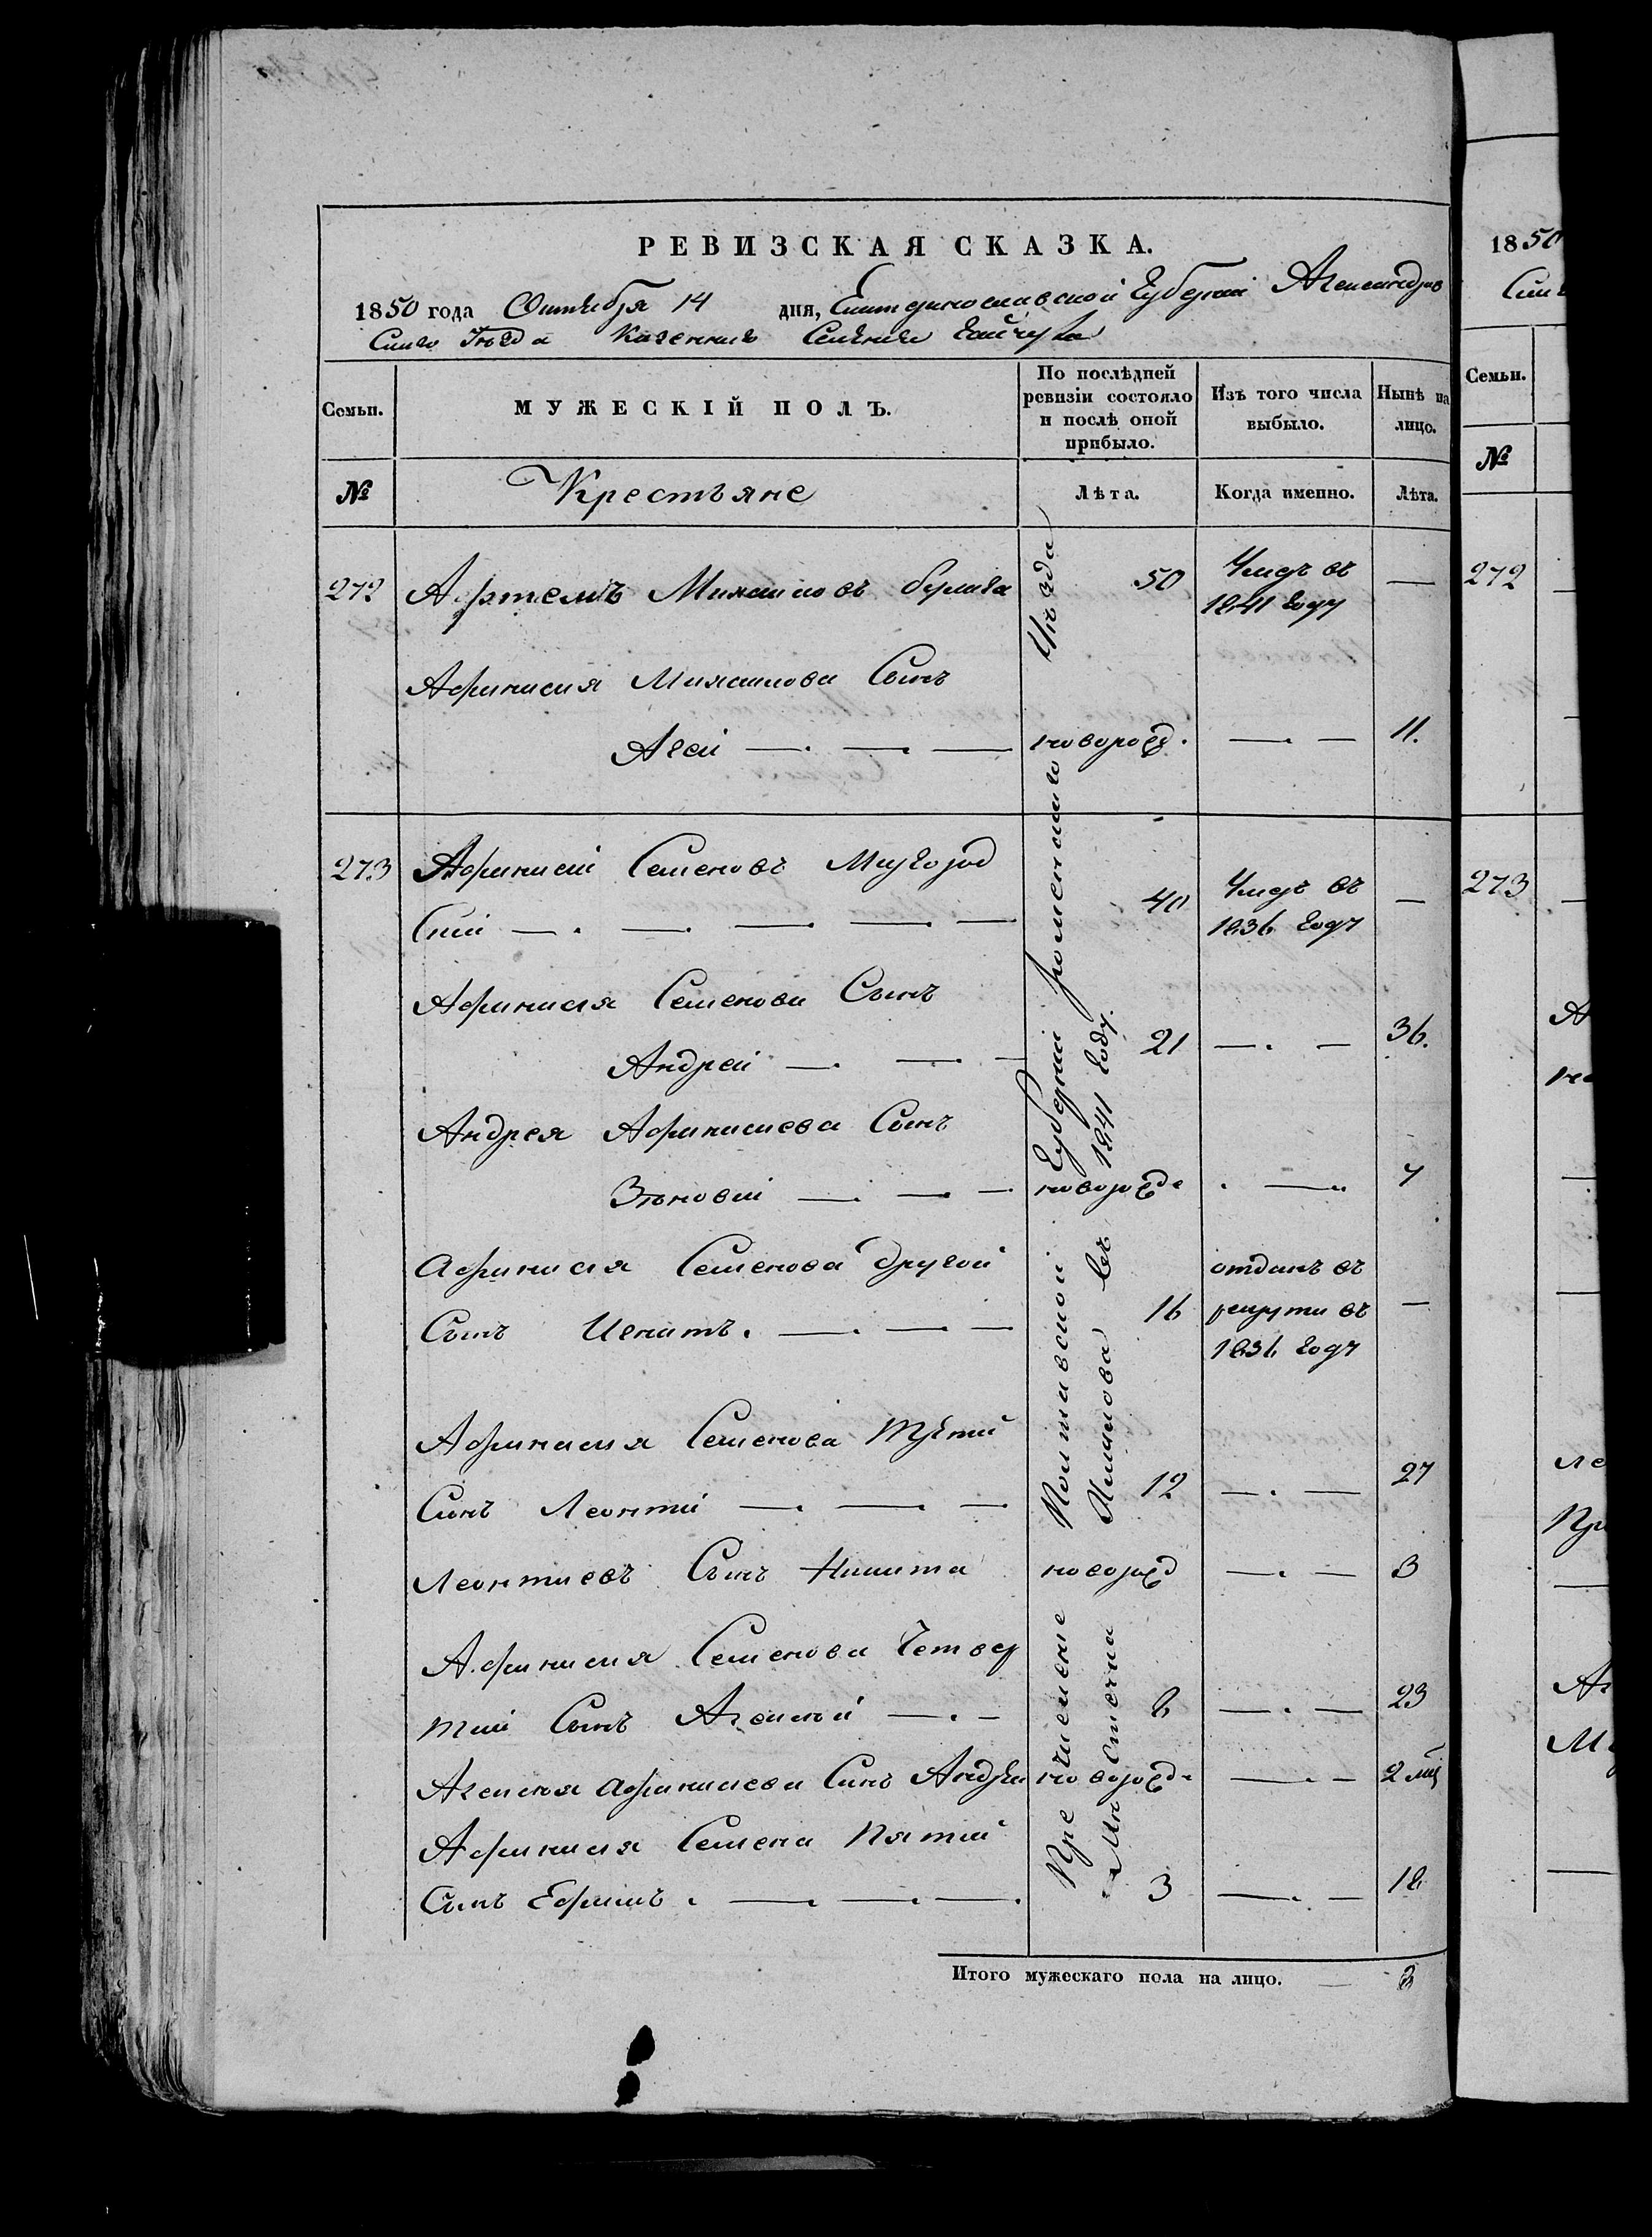 РЕВИЗСКАЯ СКАЗКА.
1850 года Октября 14 дня, Екатеринославской Губерніи Александров
скаго Уѣзда Казеннаго Селенія Гайчура
Семьи.
МУЖЕСКІЙ ПОЛЪ.
По послѣдней ревизіи состояло и послѣ оной прибыло.
Изъ того числа выбыло.
Нынѣ на лицо.
№
Крестьяне
Лѣта.
Когда именно.
Лѣта.
272 Артемъ Михайловъ 50 Умеръ въ —
1841 году
Афанасія Михайлова Сынъ
новорожд. — 11.
273 Афанасій Семеновъ Миргород
Скій — 40 Умеръ въ —
1836 году
Афанасія Семенова Сынъ
Андрей — 21 — 36.
Андрея Афанасиева Сынъ
Зѣновій — новорожд. — 7
Афанасія Семенова другой
Сынъ Игнатъ. — 16 отданъ въ
рекруты въ —
1836 году
Афанасія Семенова Третій
Сынъ Леонтій — 12 — 27
Леонтиевъ Сынъ Никита новорожд — 3
Афанасія Семенова Четвер
тий Сынъ Алексѣй — 8 — 23
Алексѣя Афанасиева Сынъ Андрей новорожд. — 2 мц
Афанасія Семена Пятий
Сынъ Ефимъ. — 3 — 18
Полтавской Губерніи Роменскаго Уѣзда
въ 1841 году.
Итого мужескаго пола на лицо. — 8
1850
Семьи.
№
272
273